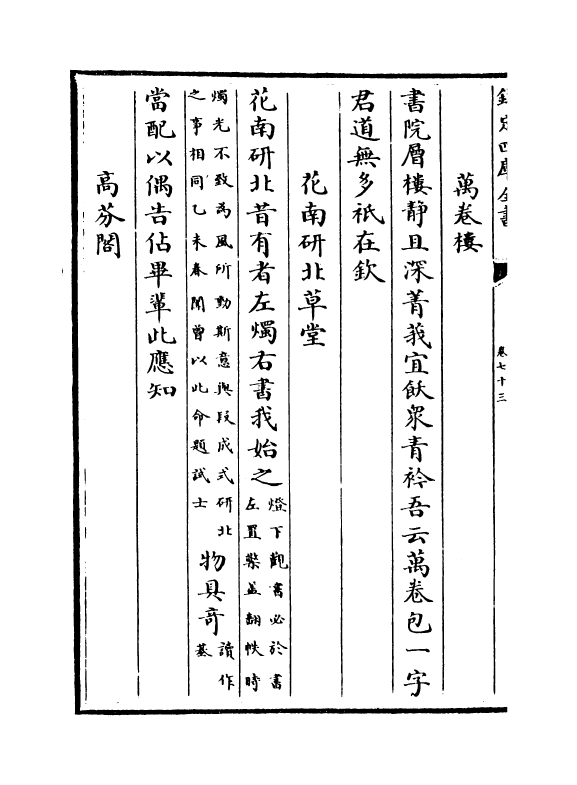 欽定四庫全書
卷七十三
萬卷樓
書院層樓静且深菁莪宜飫衆青衿吾云萬卷包一字
君道無多祇在欽
花南研北草堂
花南研北昔有者左燭右書我始之
燈下觀書必於書
左置檠盖翻帙時
燭光不致為風所動斯意與段成式研北
之事相同乙未春闈曾以此命題試士
物具竒
讀作
基
當配以偶告佔畢輩此應知
高芬閣